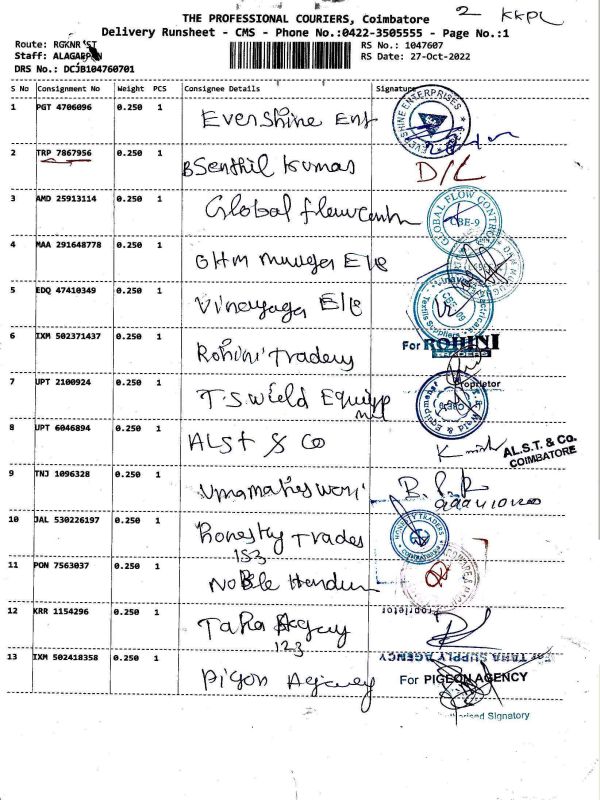 2 KKPL
THE PROFESSIONAL COURIERS, Coimbatore
Delivery Runsheet - CMS - Phone No.:0422-3505555 - Page No.:1
Route: RGKNR ST
RS No.: 1047607
Staff: ALAGARPAN
RS Date: 27-Oct-2022
DRS No.: DCJB104760701
S No Consignment No Weight PCS Consignee Details Signature
1 PGT 4706096 0.250 1 Evershine Ent
EVERSHINE ENTERPRISES
2 TRP 7867956 0.250 1 B Senthil Kumar D/L
3 AMD 25913114 0.250 1 Global flow
GLOBAL FLOW CONTROL CBE-9
4 MAA 291648778 0.250 1 OHM
5 EDQ 47410349 0.250 1 Vinayaga
Textile Suppliers
6 IXM 502371437 0.250 1 Rohini Traders
For ROHINI TRADERS
Proprietor
7 UPT 2100924 0.250 1 T.S. Weld Equipp
8 UPT 6046894 0.250 1 ALST & Co
AL.S.T. & Co.
COIMBATORE
9 TNJ 1096328 0.250 1 Umamaheswari
10 JAL 530226197 0.250 1 Honesty Trades
153
HONESTY TRADERS
11 PON 7563037 0.250 1 Noble
Proprietor
12 KRR 1154296 0.250 1 Taha Agency
123
For TAHA SUPPLY AGENCY
13 IXM 502418358 0.250 1 Pigon Agency
For PIGEON AGENCY
Authorised Signatory